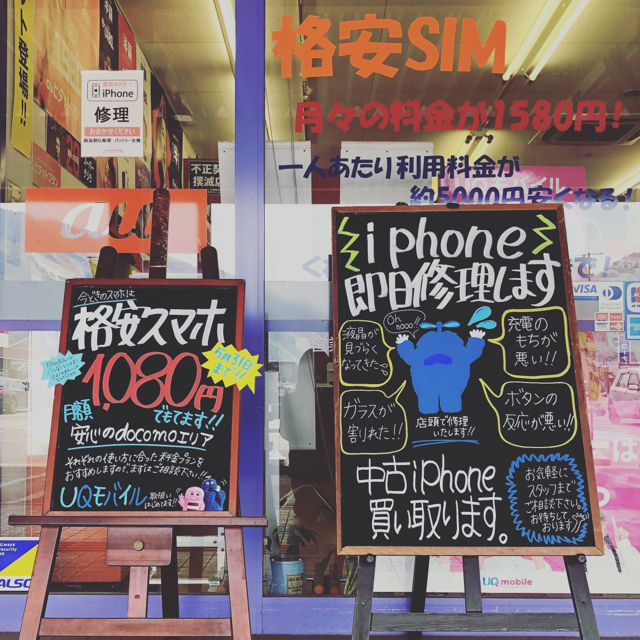 格安SIM
月々の料金が1580円!
一人あたり利用料金が
約5000円安くなる!
iPhone
修理
おまかせください
不正契
撲滅店
au
今どきのスマホは
格安スマホ
1,080円
5月31日
まで!!
月額
でもてます!!
安心のdocomoエリア
それぞれの使い方に合った料金プランを
おすすめしますので、まずはご相談下さい!!
UQモバイル
取扱い
はじめます!!
iphone
即日修理します
Oh
nooo!!
液晶が
見づらく
なってきた
充電の
もちが
悪い!!
ガラスが
割れた!!
ボタンの
反応が悪い!!
店頭で修理
いたします!!
中古iPhone
買い取ります。
お気軽に
スタッフまで
ご相談下さい。
お待ちして
おります!
VISA
UQ mobile
Always
Security
ALSOK